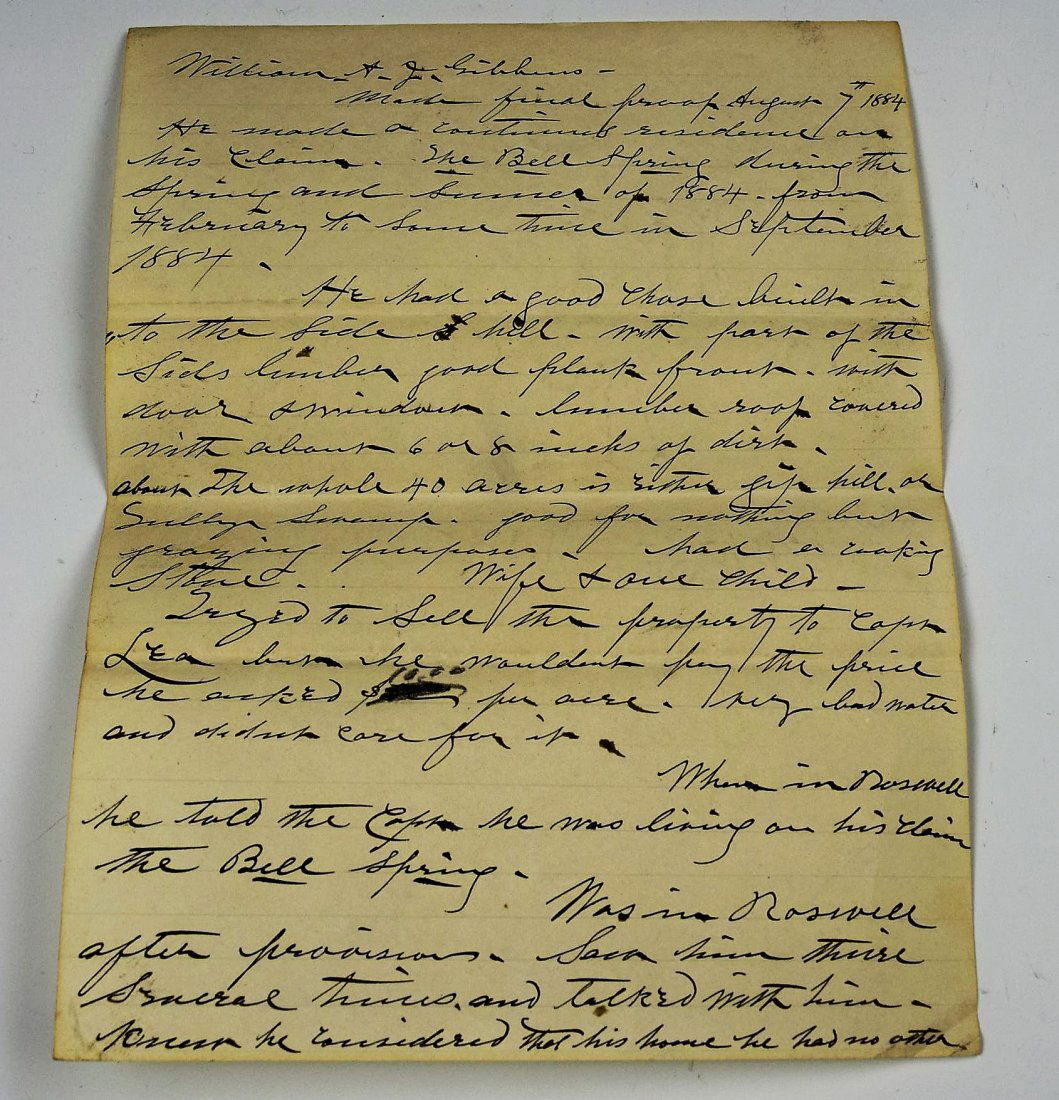 William. A. J. Gibbens -
Made final proof August 7th 1884
He made a continus residence on
his Claim. The Bell Spring during the
Spring and Summer of 1884. from
February to Some time in September
1884.
He had a good Chose built in
to the Side of hill. with part of the
Sids lumber good plank front. with
door & window. lumber roof covered
with about 6 or 8 inchs of dirt.
about The whole 40 acres is Either gip hill. or
Gullys Swamp. good for nothing but
grazing purposes. had a cooking
Stove. Wife & one Child -
Tryed to Sell the property to Capt
Lea but he wouldent pay the price
he asked $10.00 per acre. very bad water
and didnt care for it.
When in Roswell
he told the Capt he was living on his Claim
the Bell Spring.
Was in Roswell
after provisions. Saw him there
Several times. and talked with him -
Knew he considered that his home he had no other